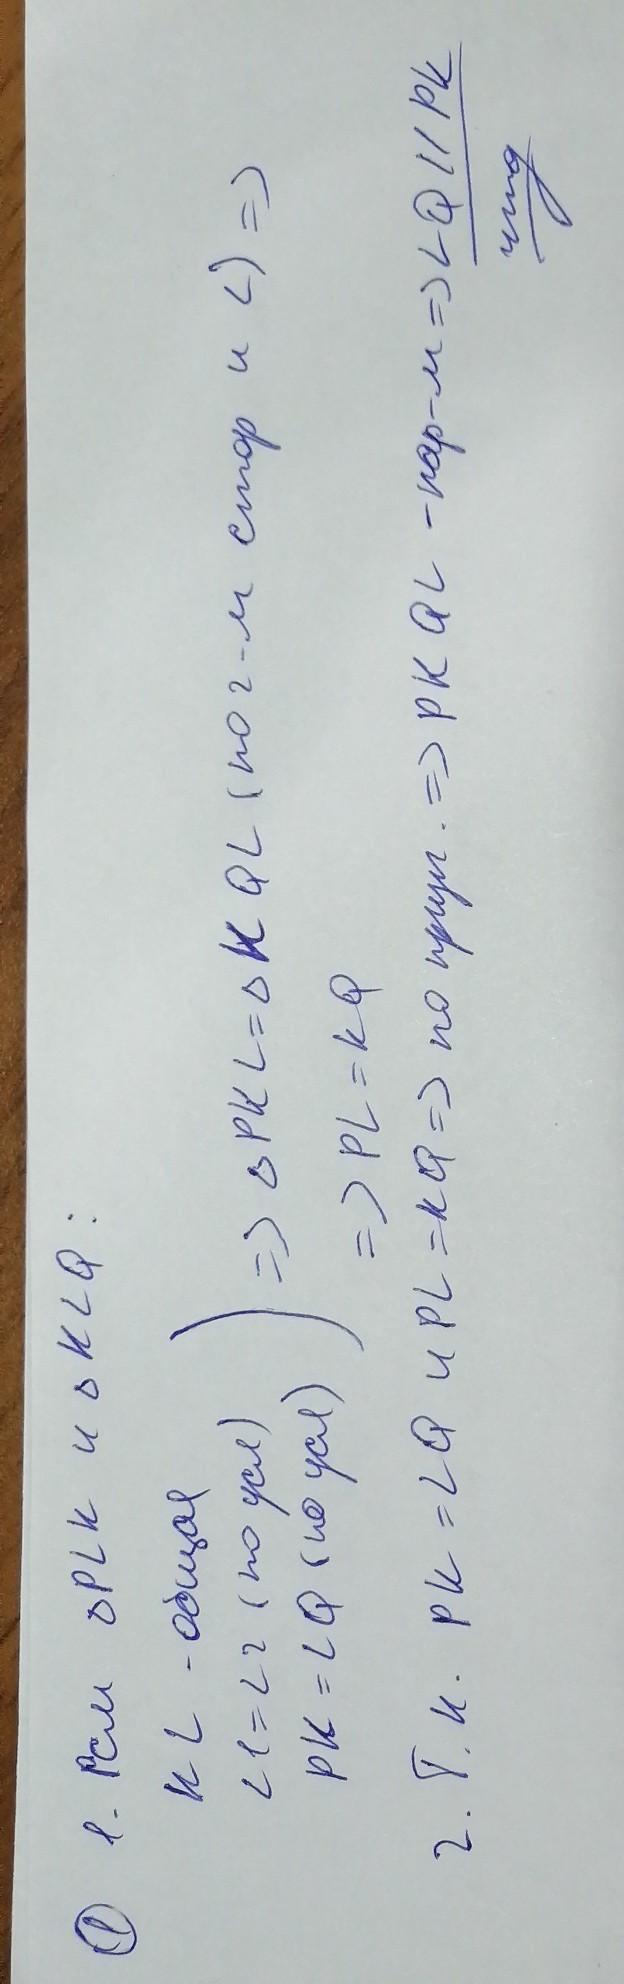 ① 1. Рсм ▵PLK и ▵KLQ:
KL - общая
∠1=∠2 (по усл)
PK=LQ (по усл)
=> ▵PKL=▵KQL (по 2-м стор и ∠) =>
=> PL=KQ
2. Т.к. PK=LQ и PL=KQ => по призн. => PKQL - пар-м => LQ || PK
чтд